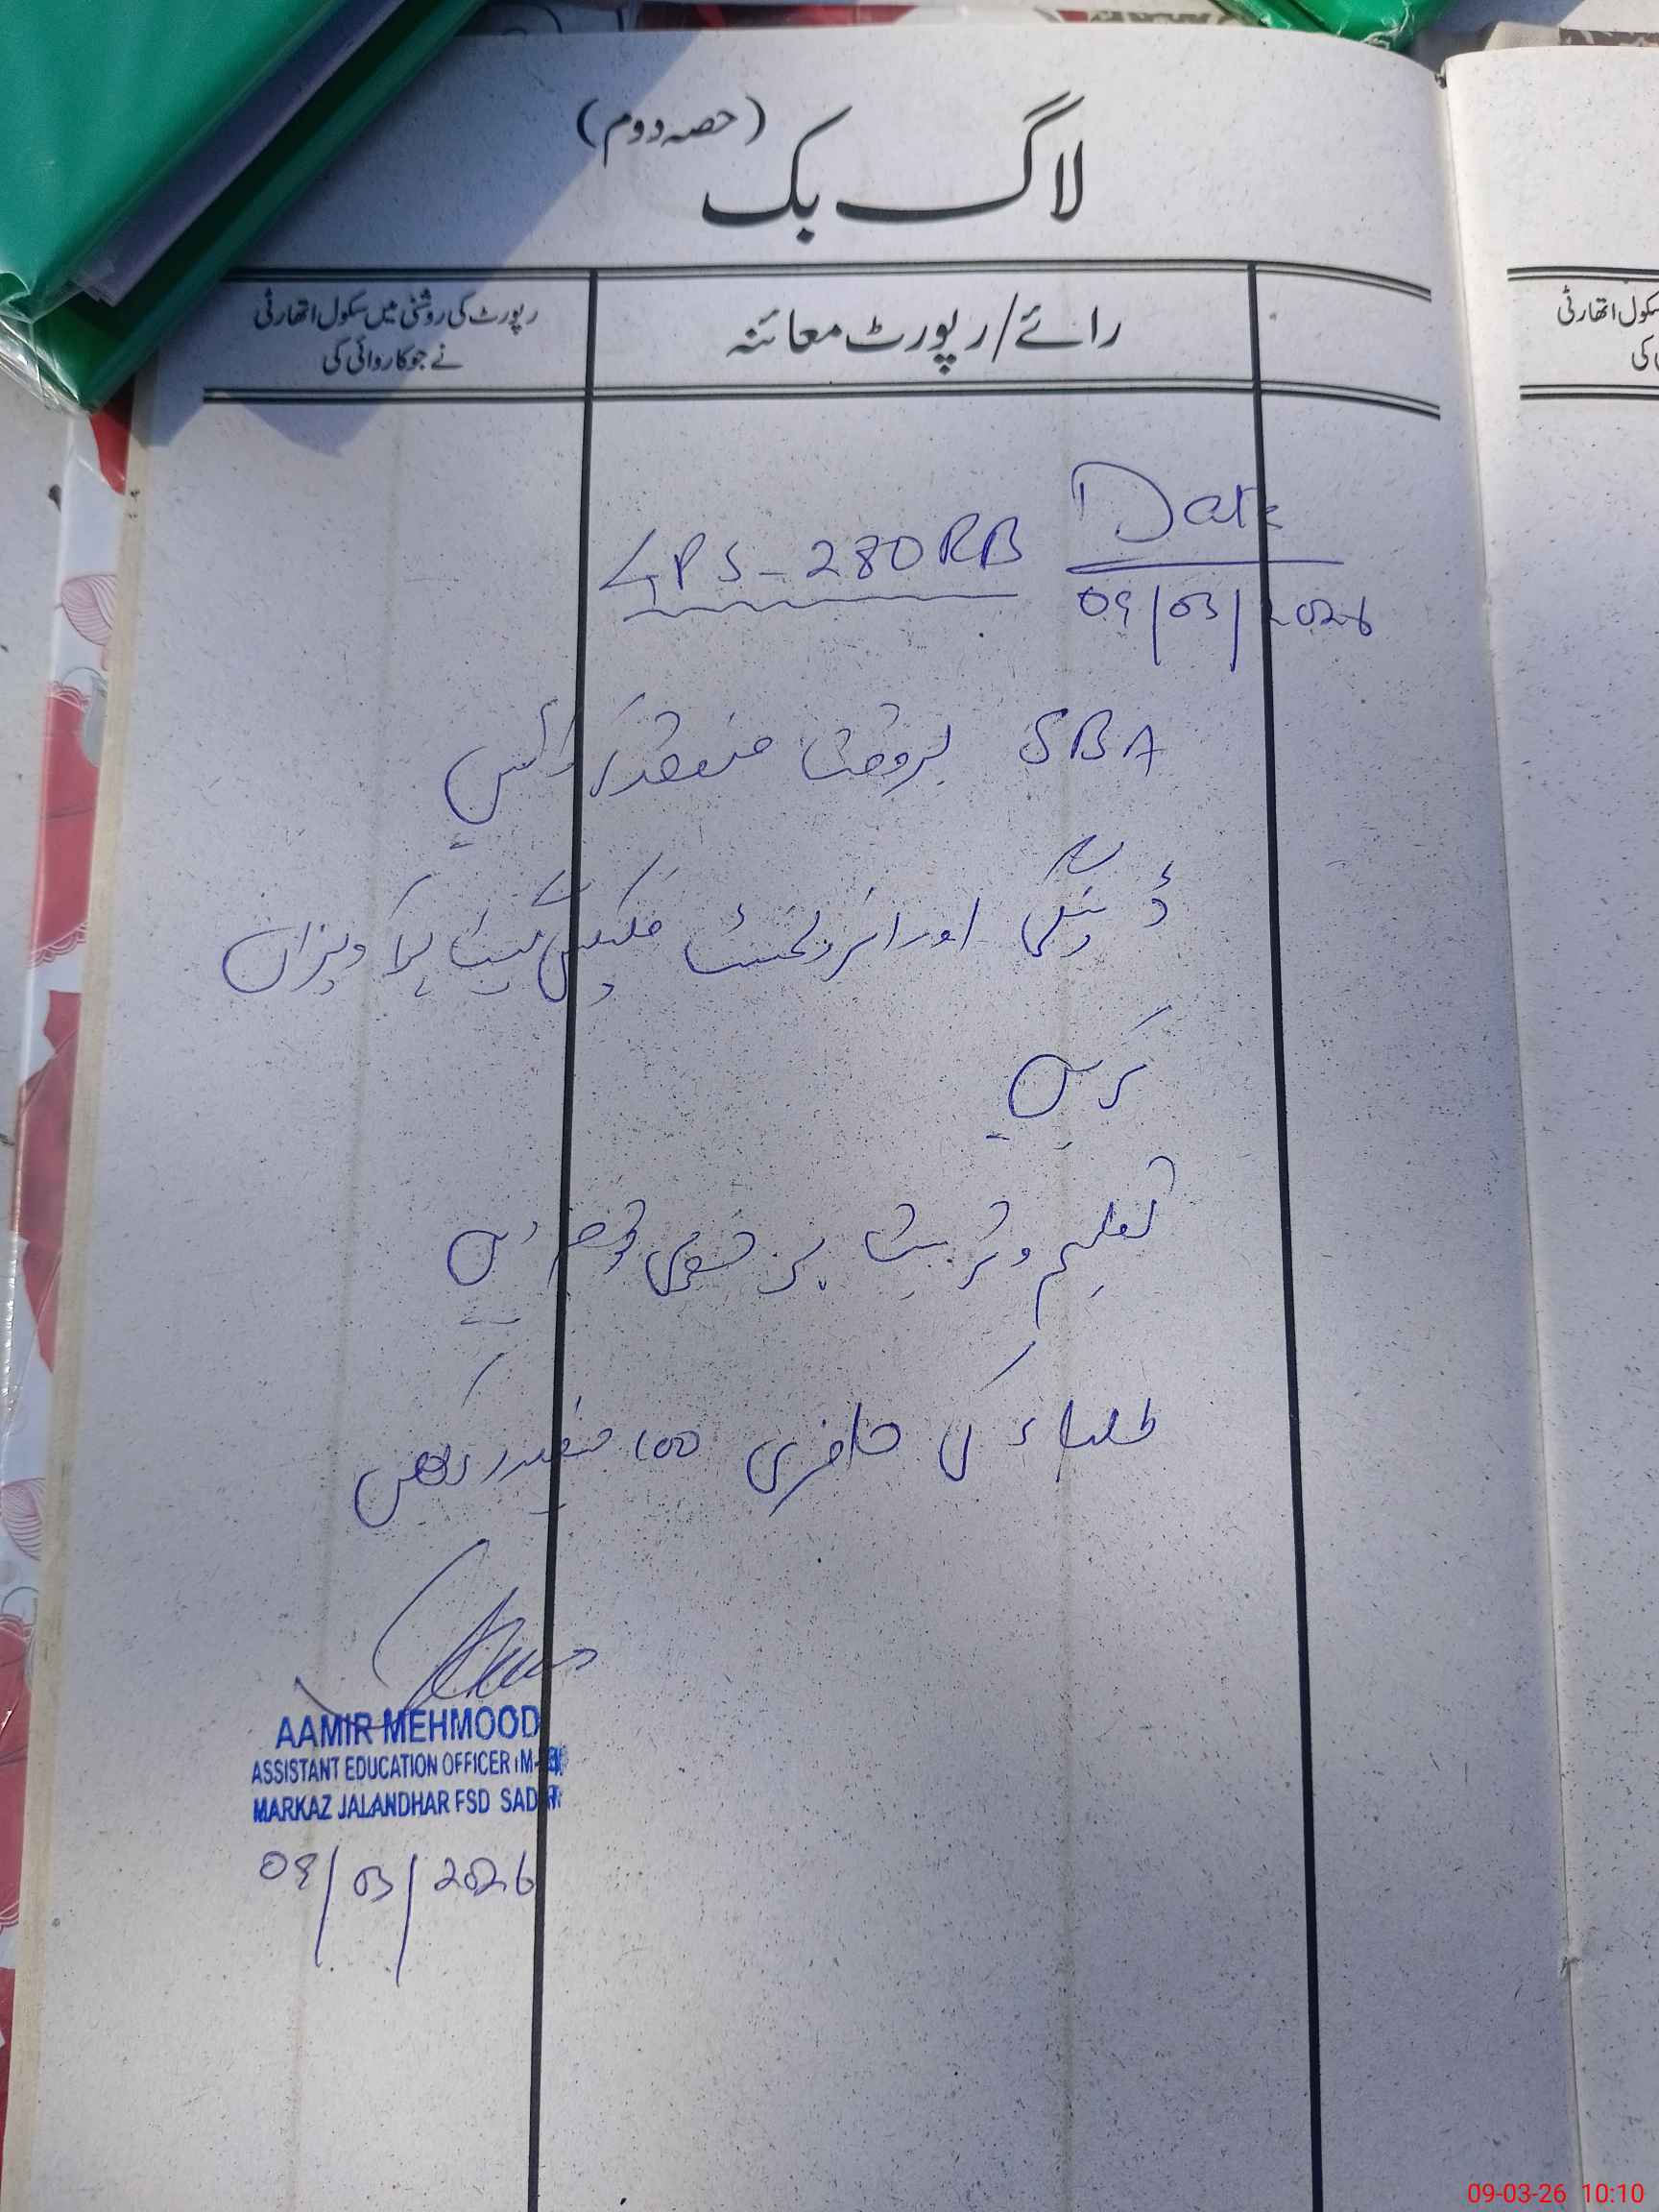 لاگ بک (حصہ دوم)
رائے/رپورٹ معائنہ
رپورٹ کی روشنی میں سکول اتھارٹی
نے جو کاروائی کی
سکول اتھارٹی
کی
Date
GPS-280RB
09/03/2026
SBA بروقت منعقد کرائیں
ڈینگی اور انرولمنٹ فلیکس گیٹ پر آویزاں
کریں
تعلیم و تربیت پر خصوصی توجہ دیں
طلباء کی حاضری 100 فیصد رکھیں
AAMIR MEHMOOD
ASSISTANT EDUCATION OFFICER (M-
MARKAZ JALANDHAR FSD SADAR
09/03/2026
09-03-26 10:10